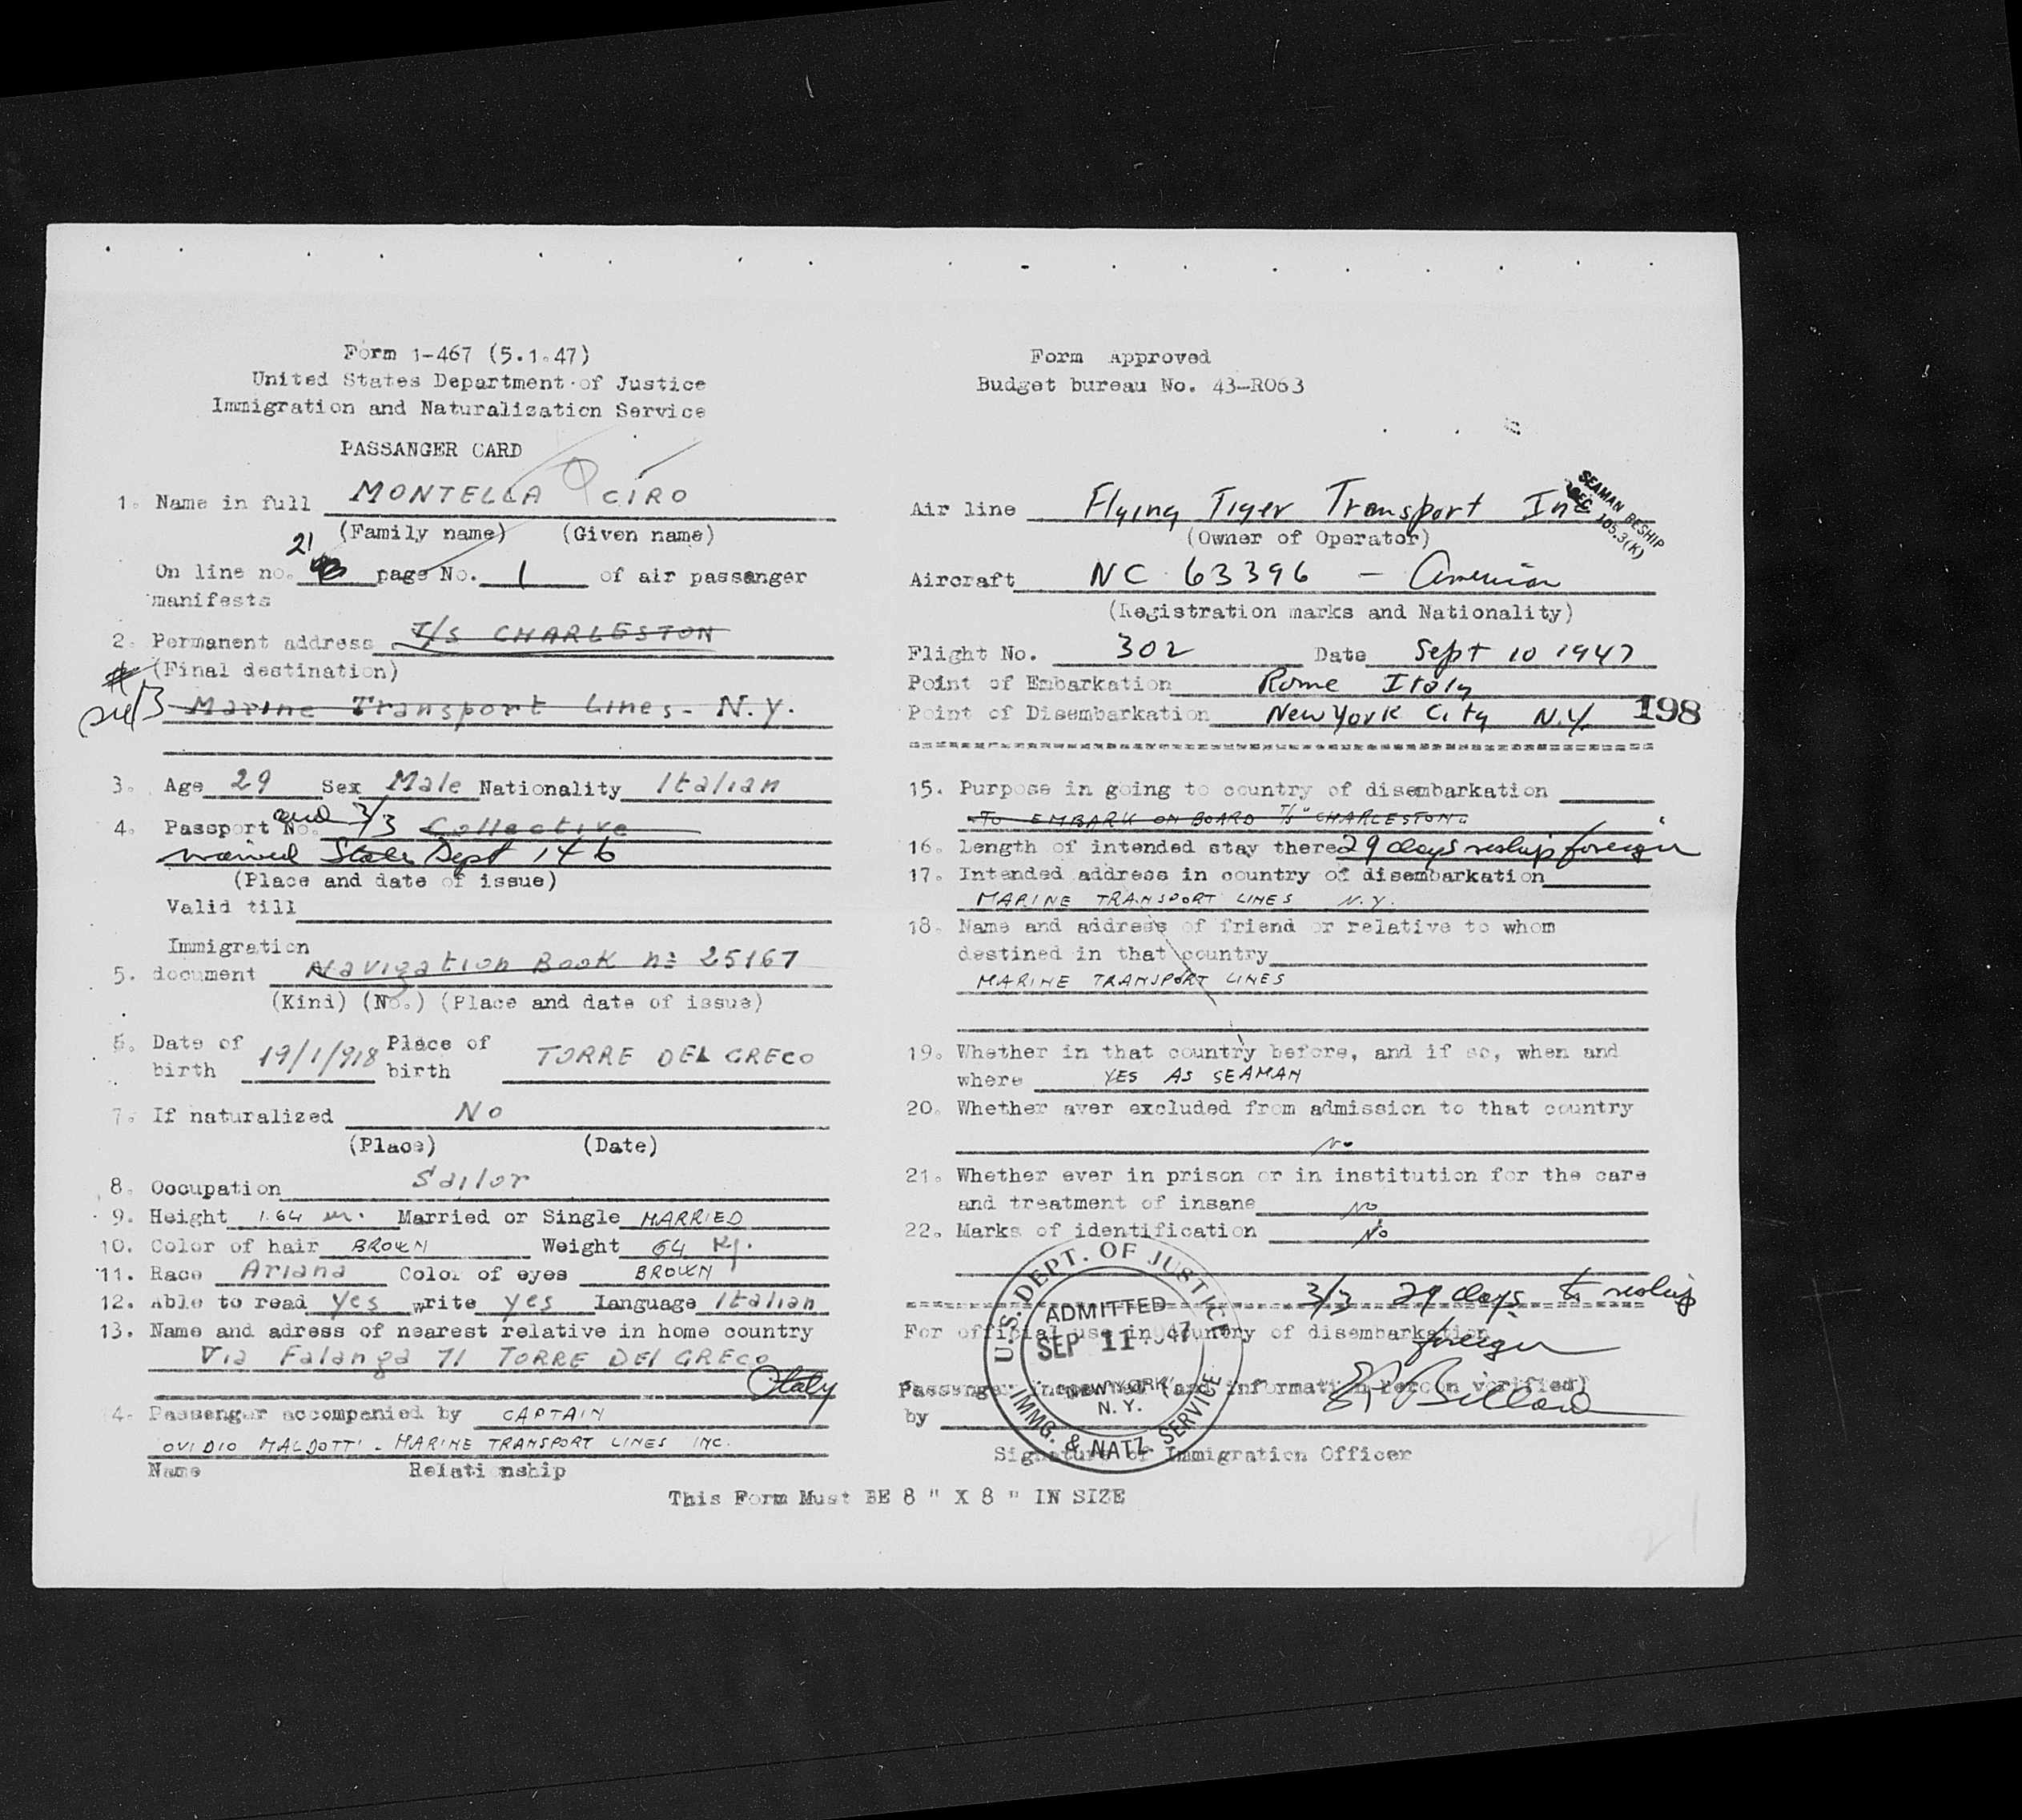 Form 1-467 (5.1.47)
United States Department of Justice
Immigration and Naturalization Service
PASSANGER CARD
1. Name in full MONTELLA CIRO
(Family name) (Given name)
21
On line no. page No. 1 of air passenger
manifests
2. Permanent address T/S CHARLESTON
(Final destination)
3/3 Marine Transport Lines - N.Y.
3. Age 29 Sex Male Nationality Italian
4. Passport No. 3/3 Collective
waived State Dept 146
(Place and date of issue)
Valid till
Immigration
5. document Navigation Book nº 25167
(Kind) (No.) (Place and date of issue)
6. Date of birth 19/1/918 Place of birth TORRE DEL GRECO
7. If naturalized No
(Place) (Date)
8. Occupation Sailor
9. Height 1.64 m. Married or Single MARRIED
10. Color of hair BROWN Weight 64 Kg.
11. Race Ariana Color of eyes BROWN
12. Able to read yes write yes Language Italian
13. Name and adress of nearest relative in home country
Via Falanga 71 TORRE DEL GRECO
Italy
4. Passenger accompanied by CAPTAIN
OVIDIO MALDOTTI - MARINE TRANSPORT LINES INC.
Name Relationship
Form Approved
Budget bureau No. 43-R063
SEAMAN RESHIP
SEC 105.3(K)
Air line Flying Tiger Transport Inc
(Owner of Operator)
Aircraft NC 63396 - American
(Registration marks and Nationality)
Flight No. 302 Date Sept 10 1947
Point of Embarkation Rome Italy
Point of Disembarkation New York City N.Y. 198
15. Purpose in going to country of disembarkation
TO EMBARK ON BOARD T/S "CHARLESTON"
16. Length of intended stay there 29 days reship foreign
17. Intended address in country of disembarkation
MARINE TRANSPORT LINES N.Y.
18. Name and address of friend or relative to whom
destined in that country
MARINE TRANSPORT LINES
19. Whether in that country before, and if so, when and
where YES AS SEAMAN
20. Whether aver excluded from admission to that country
No
21. Whether ever in prison or in institution for the care
and treatment of insane No
22. Marks of identification No
3/3 29 days to reship
For official use in country of disembarkation
foreign
Passenger inspected (and information hereon verified)
by
Signature of Immigration Officer
U.S. DEPT. OF JUSTICE
ADMITTED
SEP 11 1947
NEW YORK
N.Y.
IMMG. & NATZ. SERVICE
This Form Must BE 8 " X 8 " IN SIZE
21